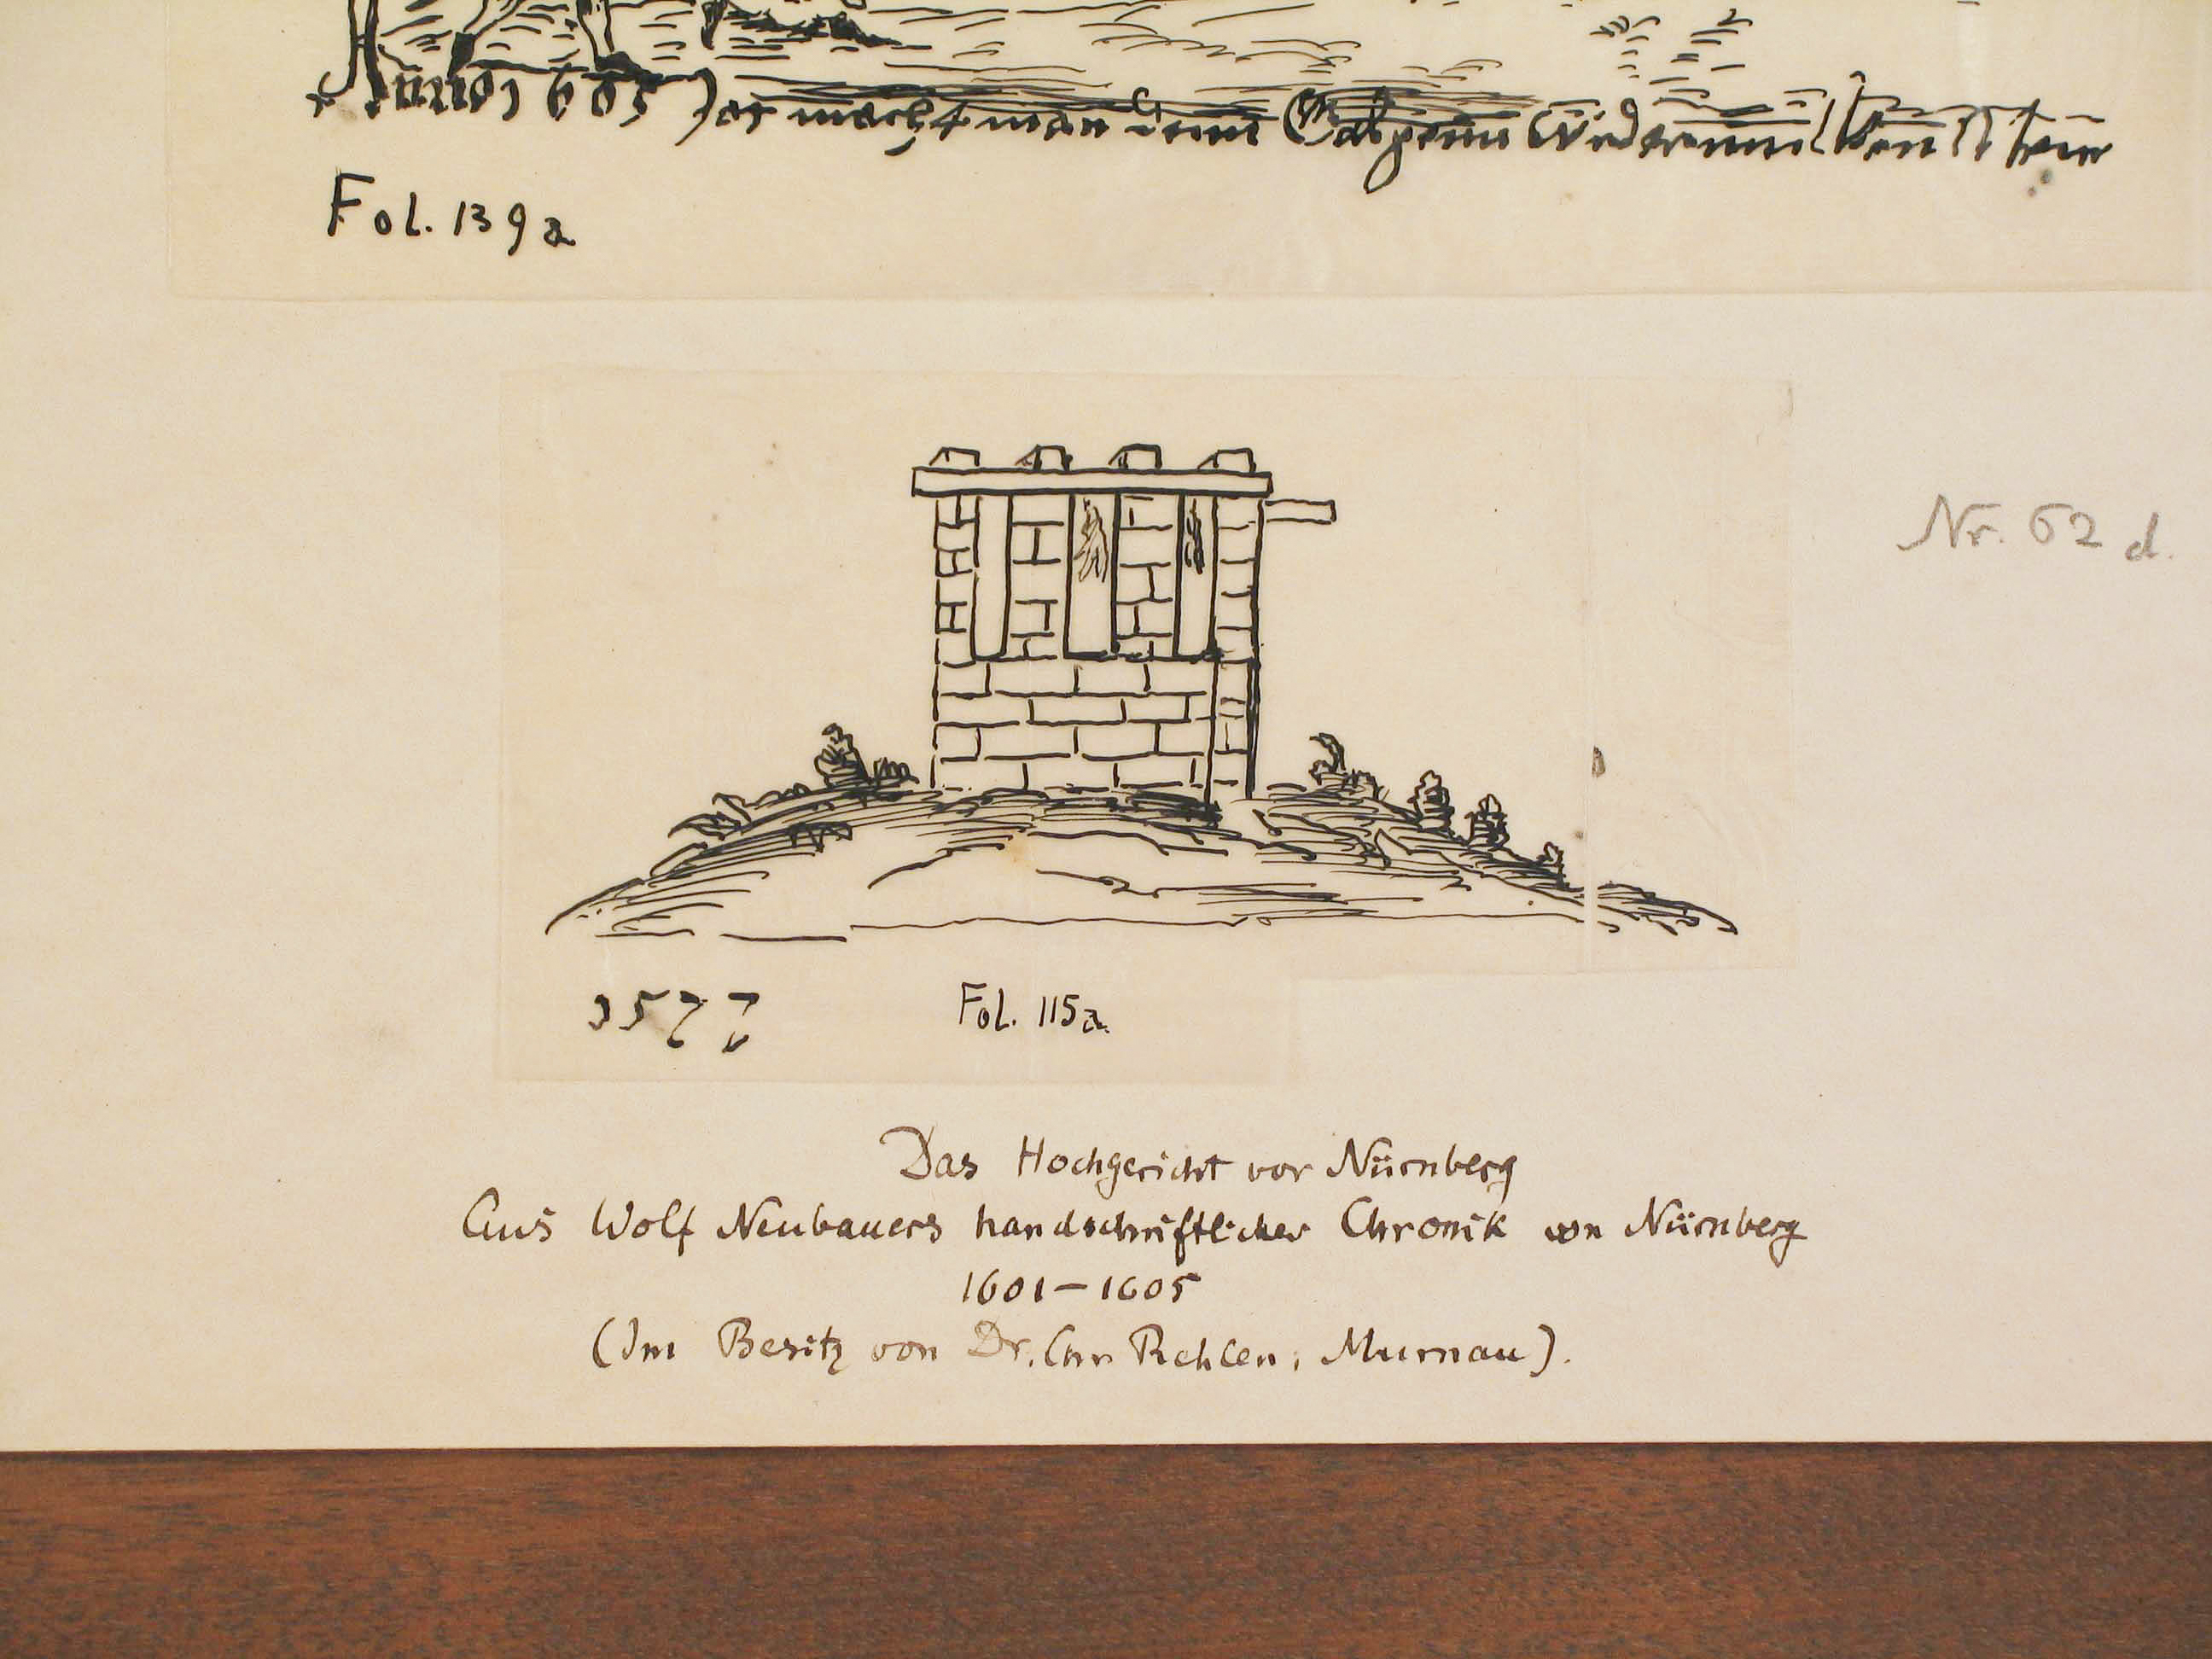 Fol. 139a
Nr. 62 d.
1577
Fol. 115a
Das Hochgericht vor Nürnberg
Aus Wolf Neubauers handschriftlicher Chronik von Nürnberg
1601–1605
(Im Besitz von Dr. Chr Rehlen, Murnau).